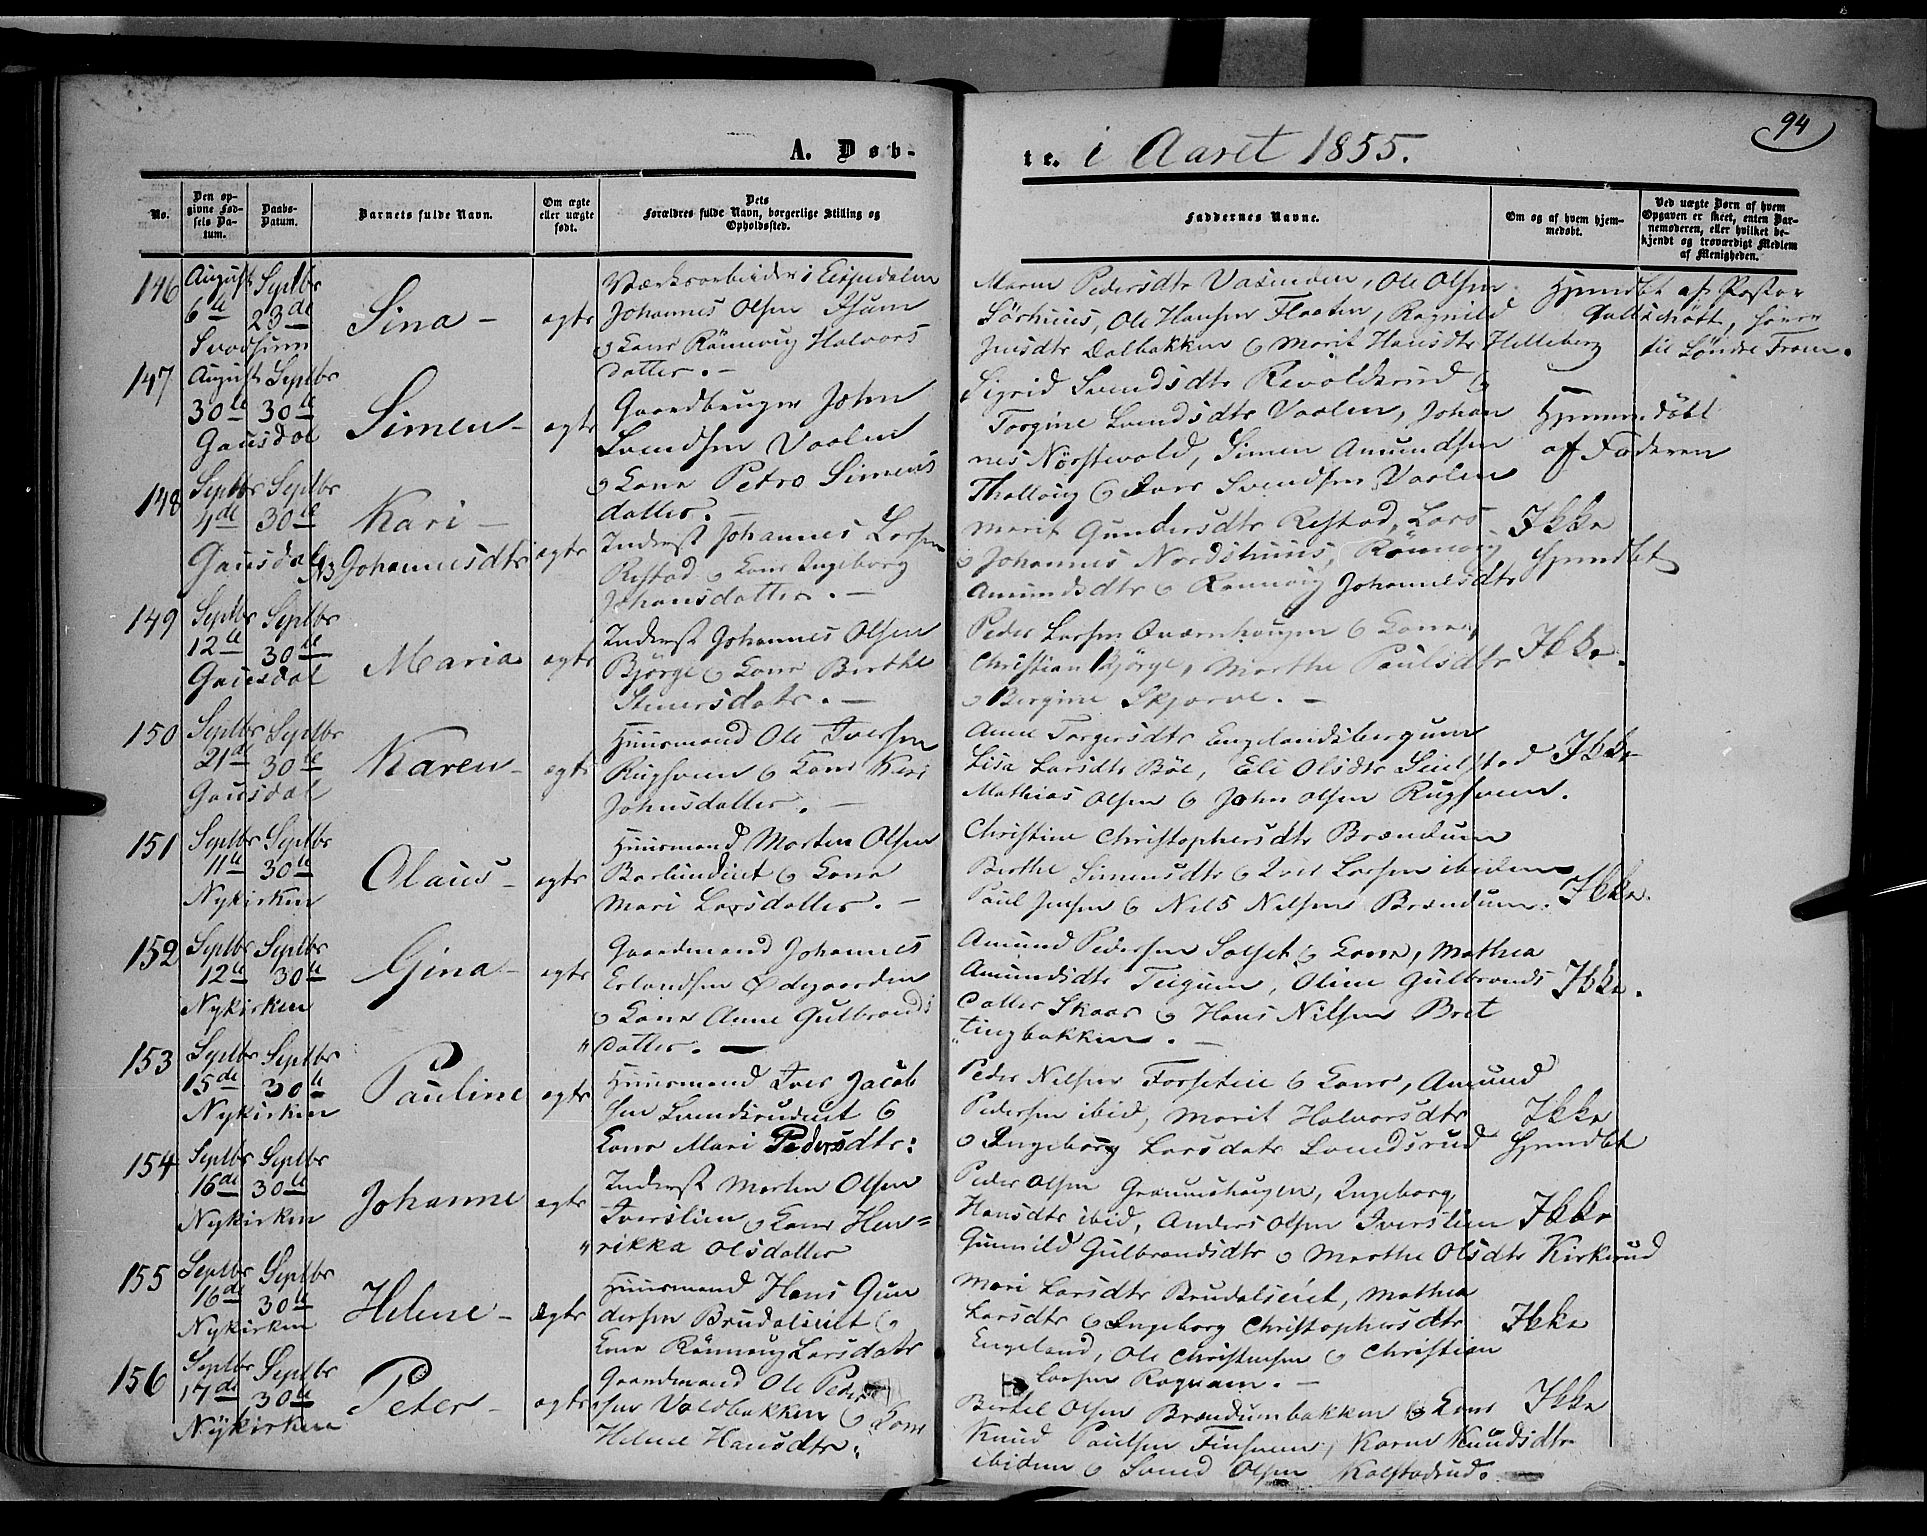 94
A. Døb-
te. i Aaret 1855.
No.
Den op-
givne Fød-
sels Da-
tum.
Daabs-
Datum.
Barnets fulde Navn.
Om ægte
eller uægte
født.
Dets
Forældres fulde Navn, borgerlige Stilling og
Opholdssted.
Faddernes Navne.
Om og af hvem hjem-
medøbt.
Ved uægte Børn af hvem
Opgaven er skeet, enten Bar-
nemoderen, eller hvilket be-
kjendt og troværdigt Medlem
af Menigheden.
146
August
6te
Svadsum
Septbr
23de
Sina -
egte
Værksarbeider i Espedalen
Johannes Olsen
o Kone Rönnoug Halvors
datter. -
Maren Pedersdtr Ole Olsen
Sörhuus, Ole Hansen Flaaten, Ragnild
Jensdtr Dalbakken o Marit Hansdtr Helleberg
Hjemdbt af Pastor
til Söndre Fron.
147
August
30te
Gausdal
Septbr
30te
Simen -
egte
Gaardbruger John
Svendsen Vaalen
o Kone Petro Simens
datter. -
Sigrid Svendsdtr Revoldsrud o
Torgine Svendsdtr Vaalen, Johan
nes Nörstevold, Simen Amundsen
Thallaug o Iver Svendsen Vaalen
Hjemmedöbt
af Faderen
148
Septbr
4de
Gausdal
Septbr
30te
Kari -
Johannesdtr
egte
Inderst Johannes Larsen
Restad o Kone Ingeborg
Johansdatter. -
Marit Gundersdtr Restad, Lars
o Johannes Nordshuus, Rönnoug
Amundsdtr o Rönnoug Johannesdtr
Ikke
Hjemdbt
149
Septbr
12te
Gausdal
Septbr
30te
Maria
egte
Inderst Johannes Olsen
Björge o Kone Berthe
Steuersdatr. -
Peder Larsen Qværnhougen o Kone,
Christian Björge, Marthe Paulsdtr
o Bergine Skjorve. -
Ikke.
150
Septbr
21de
Gausdal
Septbr
30te
Karen -
egte
Huusmand Ole Iversen
Rugsveen o Kone Kari
Johnsdatter. -
Anne Torgersdtr
Lisa Larsdtr Böe, Eli Olsdtr
Mathias Olsen o John Olsen Rugsveen.
Ikke
151
Septbr
11te
Nykirken
Septbr
30te
Olaus -
egte
Huusmand Morten Olsen
o Kone
Mari Larsdatter. -
Christine Christophersdtr Brændum
Berthe Simensdtr o Larsen ibidem
Paul Jensen o Nils Nilsen Brændum.
Ikke.
152
Septbr
12te
Nykirken
Septbr
30te
Gina -
egte
Gaardmand Johannes
Erlandsen Ødegaarden
o Kone Anne Gulbrands
" datter. -
Amund Pedersen o Kone, Mathea
Amundsdtr Oline Gulbrands
datter Skaar o Hans Nilsen Bret
" tingbakken. -
Ikke.
153
Septbr
15de
Nykirken
Septbr
30te
Pauline
egte
Huusmand Iver Jacob
sen o
Kone Mari Pedersdtr:
Peder Nilsen Forseteie o Kone, Amund
Pedersen ibid, Marit Halvorsdtr
o Ingeborg Larsdatr
Ikke
Hjemdbt
154
Septbr
16de
Nykirken
Septbr
30te
Johanne
egte
Inderst Morten Olsen
Iverslien o Kone Hen=
" rikka Olsdatter
Peder Olsen Ingeborg
Hansdtr ibid, Anders Olsen Iverslien
Gunnild Gulbrandsdtr o Marthe Olsdtr Kirkerud
Ikke
155
Septbr
16de
Nykirken
Septbr
30te
Helene -
ægte
Huusmand Hans Gun
dersen o
Kone Rönnoug Larsdatr
Mari Larsdtr Mathea
Larsdtr o Ingeborg Christophersdtr
Engeland, Ole Christensen o Christian
Larsen
Ikke
156
Septbr
17de
Nykirken
Septbr
30te
Peter -
egte
Gaardmand Ole Peder
sen Voldbakken o Kone
Helene Hansdtr:
Bertel Olsen Brændumbakken o Kone
Knud Paulsen Karen Knudsdtr
ibidem o Svend Olsen Kalstadrud. -
Ikke